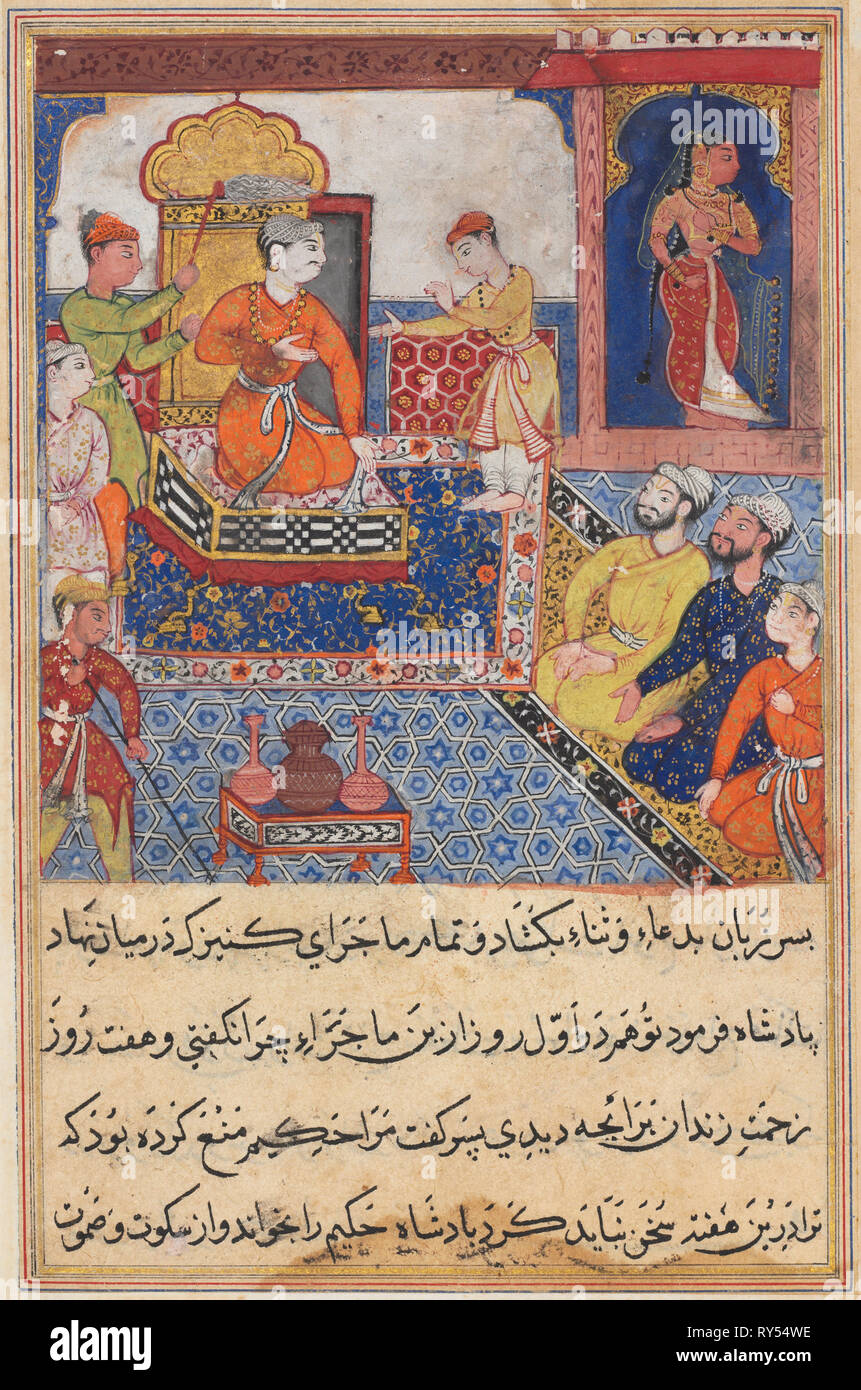 پسر زبان بدعاءِ و ثناءِ بکشاد و تمام ماجرای کنیزک در میان نهاد
پادشاه فرمود تو هم در اول روز ازین ماجراءِ چرا نکفتی و هفت روز
زحمت زندان برائچه دیدی پسر کفت مرا حکیم منع کرده بود که
ترا درین هفته سخن نباید کرد پادشاه حکیم را بخواند و از سکوت و صموت
alamy
alamy
Image ID: RY54WE
www.alamy.com